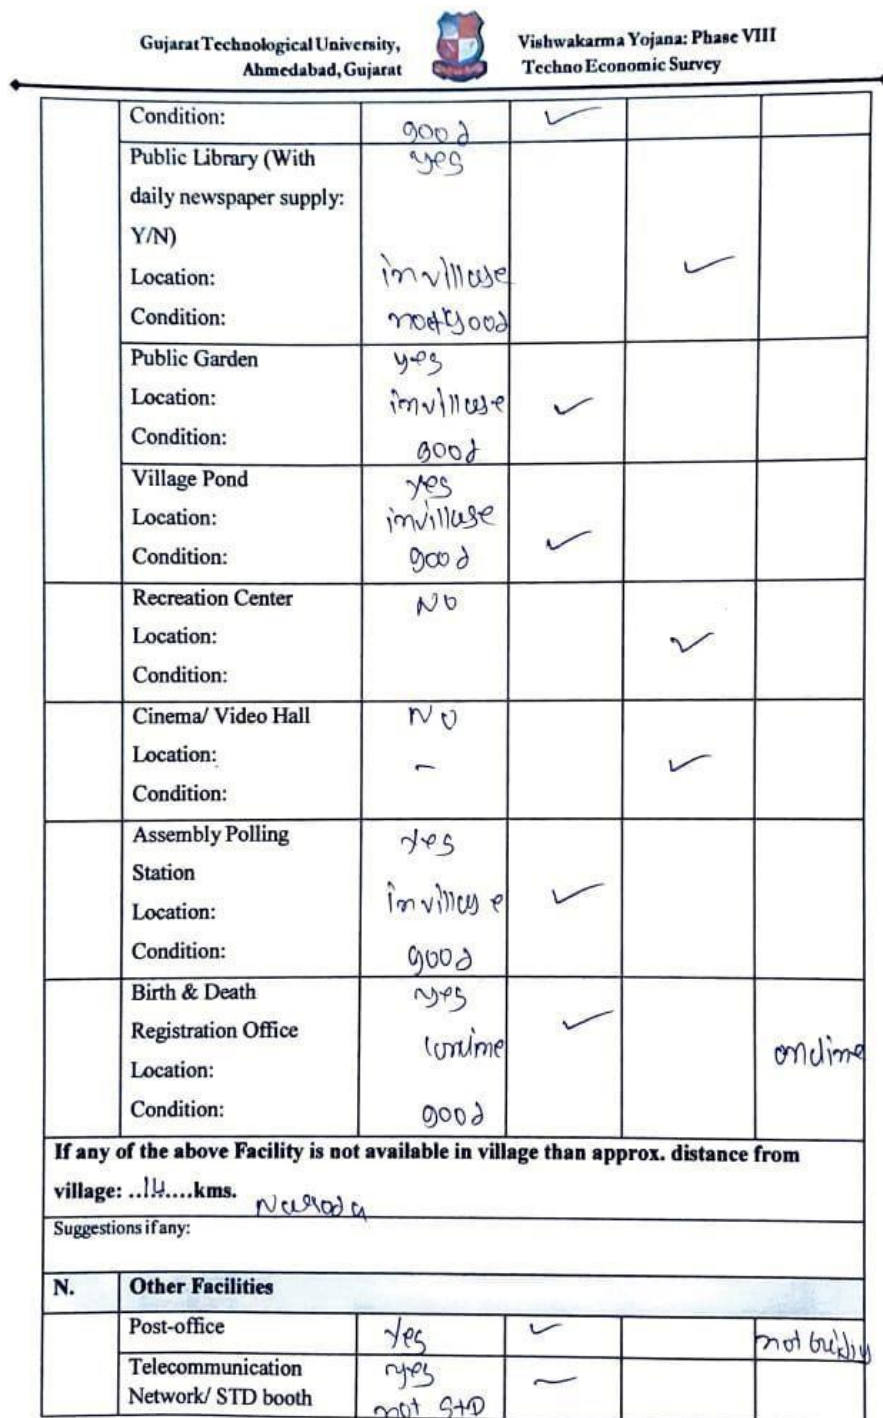 Gujarat Technological University,
Ahmedabad, Gujarat
Vishwakarma Yojana: Phase VIII
Techno Economic Survey
Condition: good ✓
Public Library (With yes
daily newspaper supply:
Y/N)
Location: in village ✓
Condition: not good
Public Garden yes
Location: in village ✓
Condition: good
Village Pond yes
Location: in village
Condition: good ✓
Recreation Center NO
Location: ✓
Condition:
Cinema/ Video Hall NO
Location: - ✓
Condition:
Assembly Polling yes
Station
Location: in village ✓
Condition: good
Birth & Death yes
Registration Office ✓ online
Location:
Condition: good
If any of the above Facility is not available in village than approx. distance from
village: ..14....kms. Naroda
Suggestions if any:
N. Other Facilities
Post-office yes ✓ not
Telecommunication yes
Network/ STD booth not STD